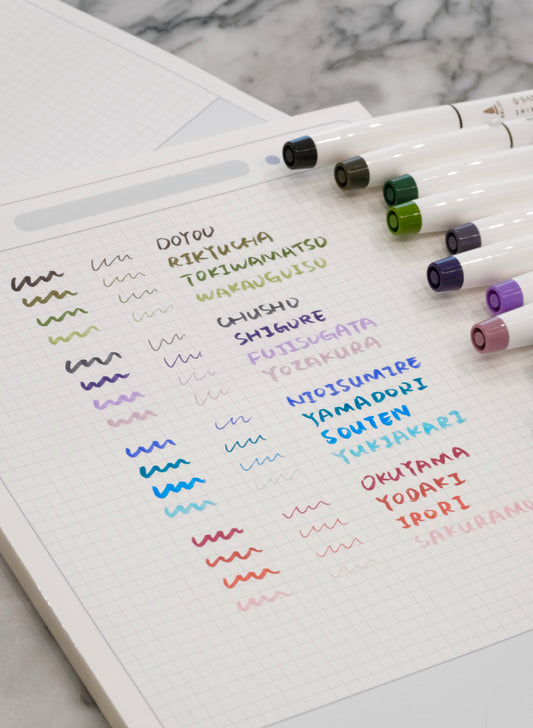 DOYOU
RIKYUCHA
TOKIWAMATSU
WAKAUGUISU
CHUSHU
SHIGURE
FUJISUGATA
YOZAKURA
NIOISUMIRE
YAMADORI
SOUTEN
YUKIAKARI
OKUYAMA
YODAKI
IRORI